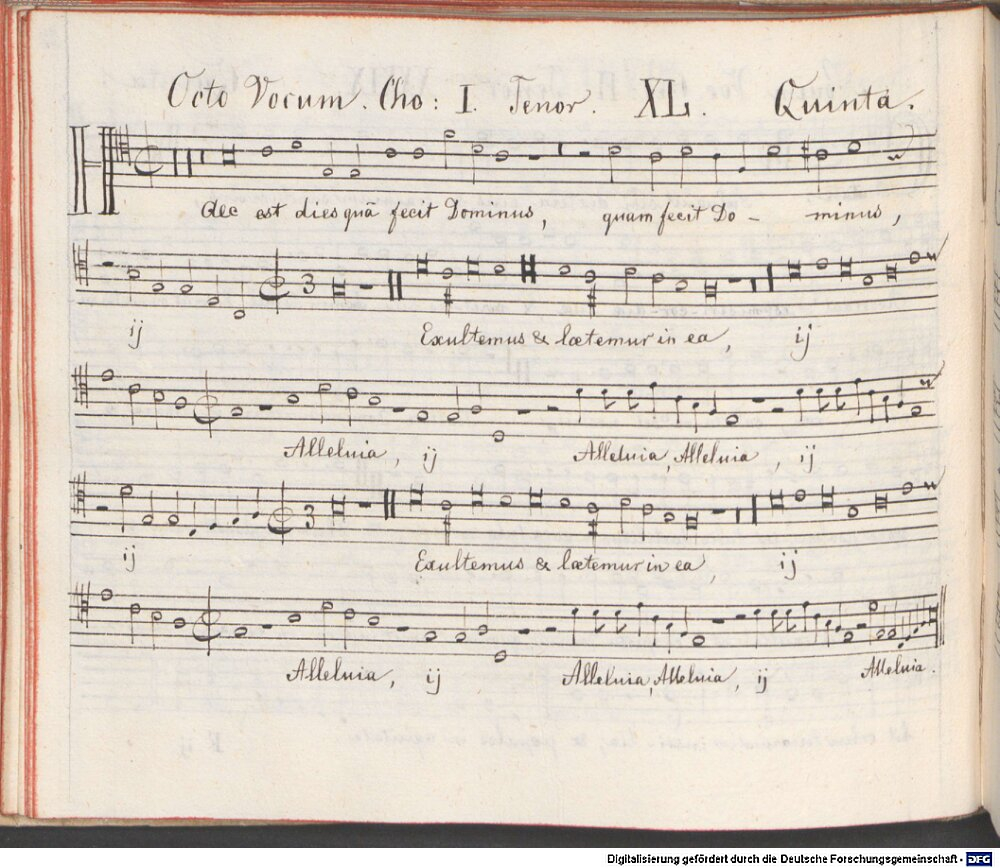 Octo Vocum. Cho: I. Tenor. XL. Quinta.
Hæc est dies quā fecit Dominus, quam fecit Do - minus,
3
ij Exultemus & lætemur in ea, ij
Alleluia, ij Alleluia, Alleluia, ij
3
ij Exultemus & lætemur in ea, ij
Alleluia, ij Alleluia, Alleluia, ij Alleluia.
Digitalisierung gefördert durch die Deutsche Forschungsgemeinschaft - DFG